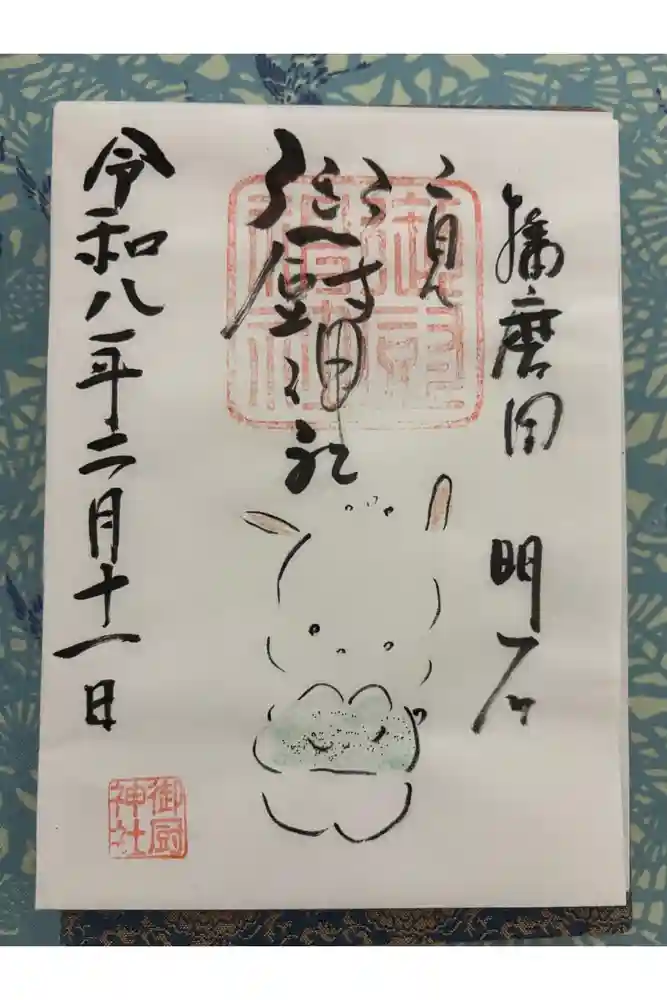 播磨国 明石
二見
御厨神社
令和八年二月十一日
御厨
神社